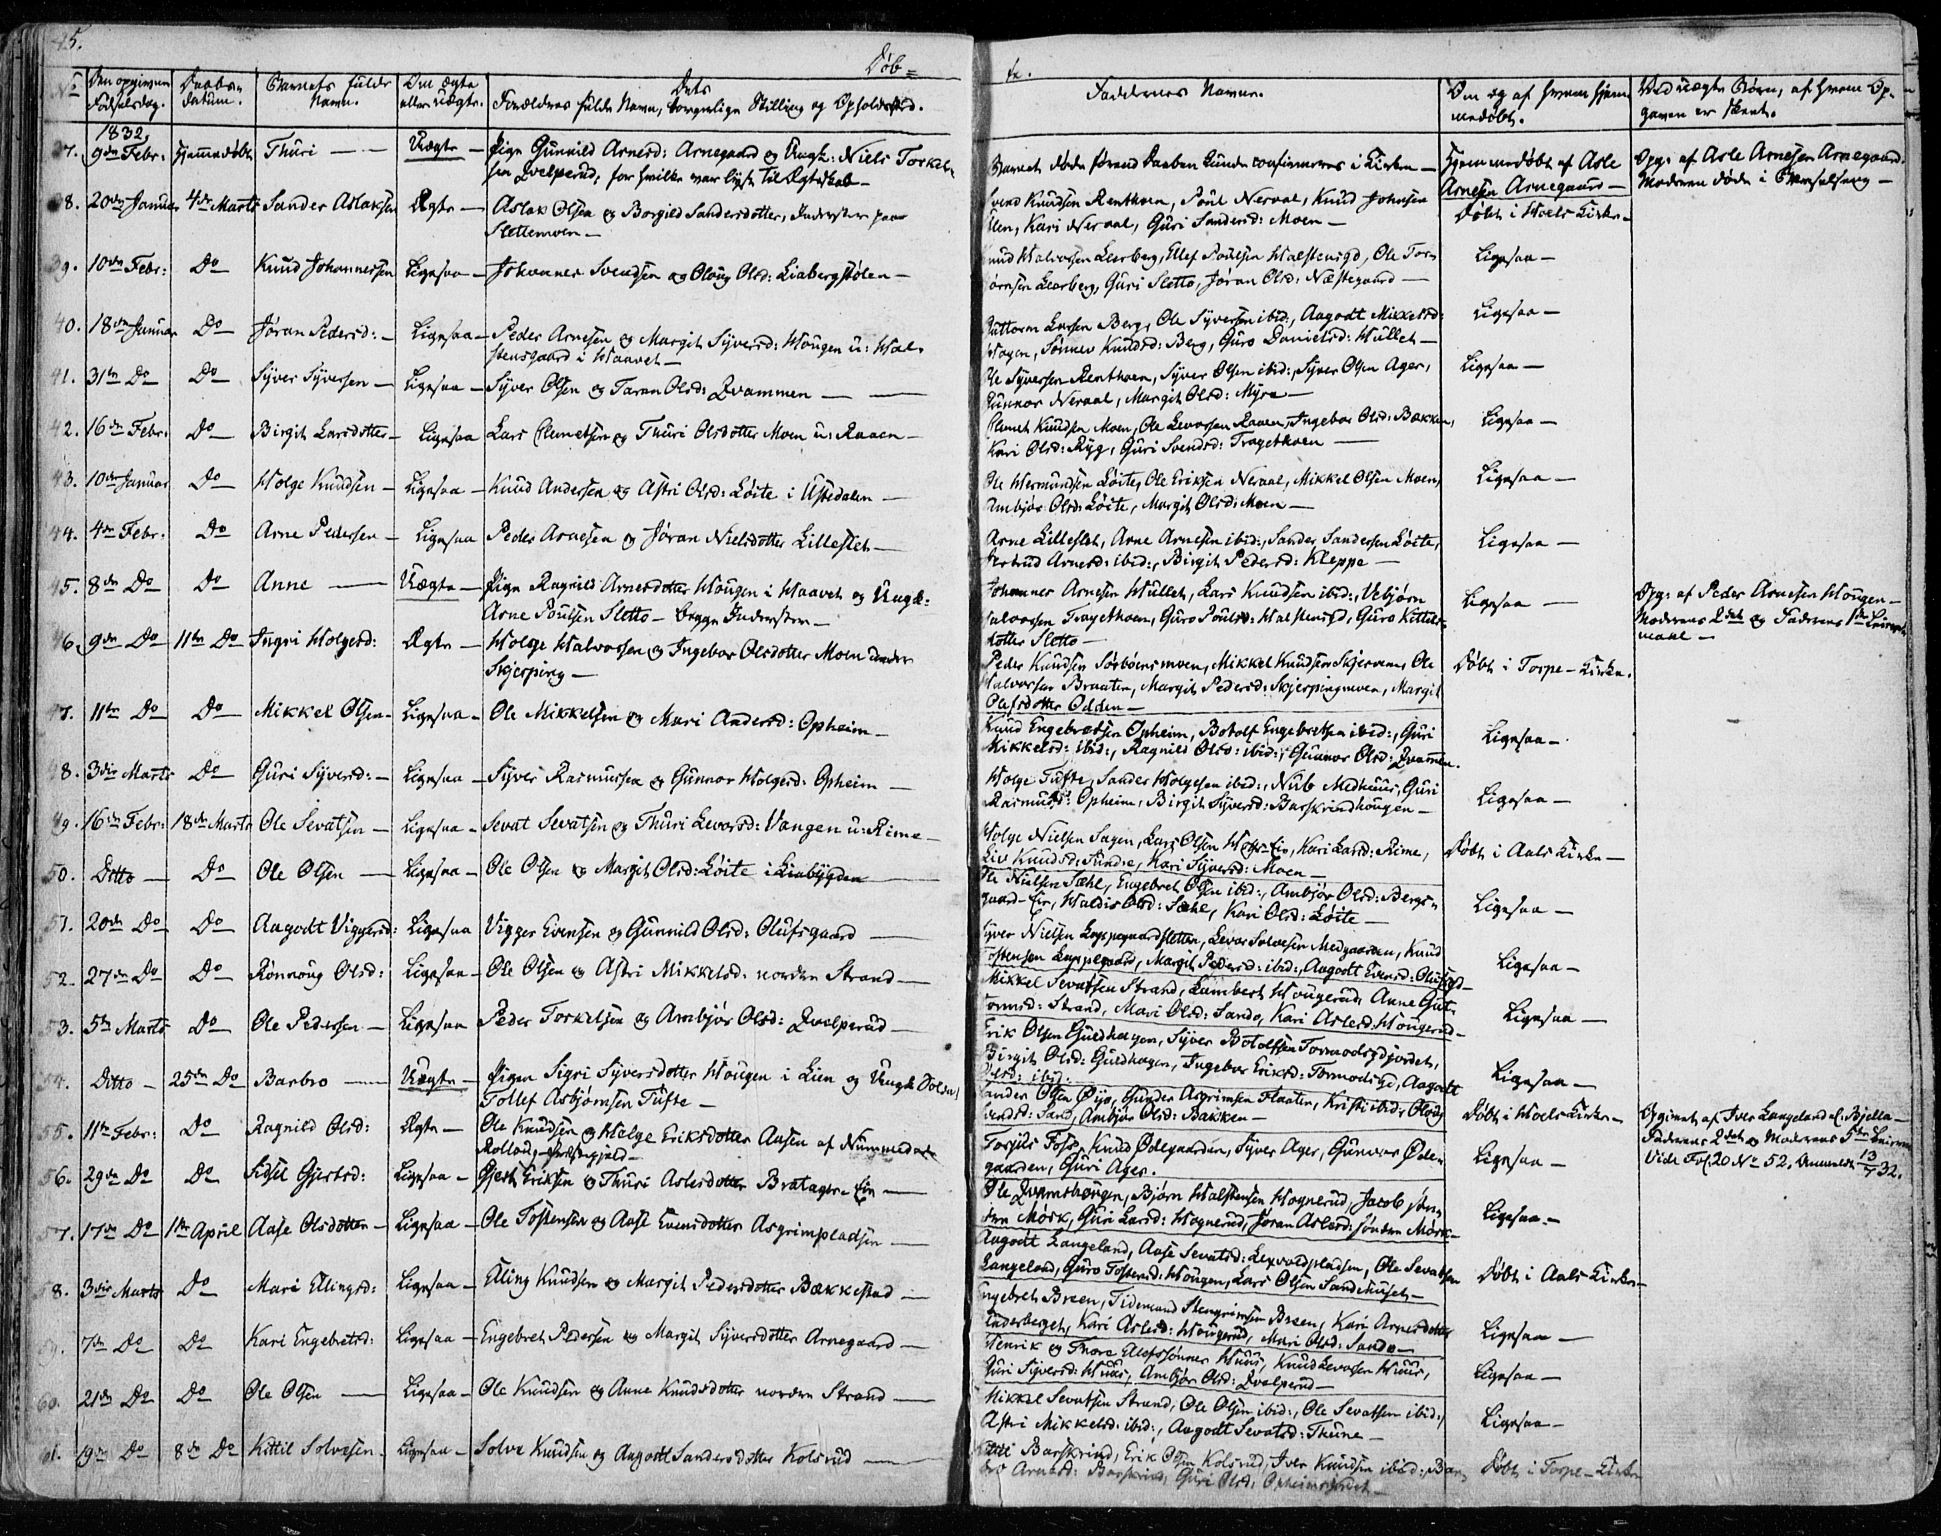 45.
Døb=
te.
No
Den opgivne Fødselsdag.
Daabs-Datum.
Barnets fulde Navn.
Om ægte eller uægte.
Dets Forældres fulde Navn, borgerlige Stilling og Opholdssted.
Faddernes Navne.
Om og af hvem hjemmedøbt.
Ved uægte Børn, af hvem Opgaven er skeet.
1832,
37. 9de Febr: hjemmedøbt Thuri — Uægte — Pige Gunnild Arnesd: Arnegaard og Ungk: Niels Torkel-
sen Qvelprud, for hvilke var lyst til Ægteskab —
Barnet døde førend Daaben kunde confirmeres i Kirken —
Hjemmedøbt af Asle
Arnesen Arnegaard —
Opg: af Asle Arnesen Arnegaard.
Moderen døde i Barselseng —
38. 20de Januar 4de Marts Sander Aslaksen Ægte — Aslak Olsen og Borgild Sandersdotter, Inderster paa
Slettemoen —
Svend Knudsen Renthoen, Poul Neraal, Knud Johnsen
Kari Neraal, Guri Sandersd: Moen —
Døbt i Hoels Kirke —
39. 10de Febr: Do Knud Johannessen Ligesaa — Johannes Svendsen og Oloug Olsd: Liabergstølen —
Knud Halvorsen Leerberg, Ellef Poulsen Halstensgd, Ole Tor-
Leerberg, Guri Sletto, Jøran Olsd: Næstegaard —
Ligesaa —
40. 18de Januar Do Jøran Pedersd: — Ligesaa — Peder Arnesen og Margit Syversd: Hougen u: Hal-
stensgaard i Haavet —
Guttorm Larsen Berg, Ole Syversen ibid:, Aagodt Mikkelsd:
Hagen, Sønnev Knudsd: Berg, Guro Danielsd: Hullet —
Ligesaa —
41. 31te Do Do Syver Syversen — Ligesaa — Syver Olsen og Taran Olsd: Qvammen —
Ole Syversen Renthoen, Syver Olsen ibid:, Syver Olsen Ager,
Gunnor Neraal, Margit Olsd: Myre —
Ligesaa —
42. 16de Febr: Do Birgit Larsdotter — Ligesaa Lars Clemetsen og Thuri Olsdotter Moen u: Raaen —
Clemet Knudsen Moen, Ole Levorsen Raaen, Ingebor Olsd: Bækken,
Kari Olsd: Ryg, Guri Svendsd: Tragethoen —
Ligesaa —
43. 10de Januar Do Holge Knudsen — Ligesaa — Knud Andersen og Astri Olsd: Løite i Ustedalen —
Ole Hermundsen Løite, Ole Eriksen Neraal, Mikkel Olsen Moen,
Ambjør Olsd: Løite, Margit Olsd: Moen —
Ligesaa —
44. 4de Febr: Do Arne Pedersen — Ligesaa Peder Arnesen og Jøran Nielsdotter Lilleslet —
Arne Lilleslet, Arne Arnesen ibid:, Sander Sandersen Løite,
Arnesd: ibid:, Birgit Pedersd: Kleppe —
Ligesaa —
45. 8de Do Do Anne — Uægte — Pige Ragnild Arnesdotter Hougen i Haavet og Ungk:
Arne Poulsen Sletto — begge Inderster —
Johannes Arnesen Hullet, Lars Knudsen ibid:, Vebjørn
Halvorsen Tragethoen, Guro Poulsd: Halstensgd, Guro Kittels-
dotter Sletto —
Ligesaa —
Opg: af Peder Arnesen Hougen —
Moderens 2det og Faderens 1ste Leiers-
maal —
46. 9de Do 11te Do Ingri Holgersd: Ægte — Holge Halvorsen og Ingebor Olsdotter Moen under
Skjerping —
Peder Knudsen Sørbøensmoen, Mikkel Knudsen Skjerven, Ole
Halvorsen Braaten, Margit Pedersd: Skjerpingmoen, Margit
Olafsdotter Odden —
Døbt i Torpe-Kirke.
47. 11te Do Do Mikkel Olsen — Ligesaa — Ole Mikkelsen og Mari Andersd: Opheim —
Knud Engebretsen Opheim, Botolf Engebretsen ibid:, Guri
Mikkelsd: ibid:, Ragnild Olsd: ibid:, Gunnor Olsd: Qvammen.
Ligesaa —
48. 3die Marts Do Guri Syversd: — Ligesaa — Syver Rasmussen og Gunnor Holgersd: Opheim —
Holge Tufte, Sander Holgesen ibid:, Nub Medhuus, Guri
Rasmusd: Opheim, Birgit Syversd: Barskrindhougen —
Ligesaa —
49. 16de Febr: 18de Marts Ole Sevatsen — Ligesaa — Sevat Sevatsen og Thuri Levorsd: Vangen u: Rime —
Holge Nielsen Sagen, Lars Olsen Eie, Kari Larsd: Rime,
Liv Knudsd: Sundre, Kari Syversd: Moen —
Døbt i Aals Kirke —
50. Ditto — Do Ole Olsen — Ligesaa — Ole Olsen og Margit Olsd: Løite i Liabygden —
Ole Nielsen Sæhl, Engebret Olsen ibid:, Ambjør Olsd: Bergs-
gaard-Eie, Haldis Olsd: Sæhl, Kari Olsd: Løite —
Ligesaa —
51. 20de Do Do Aagodt Viggersd: Ligesaa Vigger Evensen og Gunnild Olsd: Olufsgaard —
Syver Nielsen Leppegaardsletten, Levor Solvesen Medgaarden, Knud
Tostensen Leppegaard, Margit Pedersd: ibid:, Aagodt Evensd: Olufsgd —
Ligesaa —
52. 27de Do Do Rønnoug Olsd: Ligesaa — Ole Olsen og Astri Mikkelsd: nordre Strand —
Mikkel Sevatsen Strand, Lambert Hougerud, Anne Gut-
tormsd: Strand, Mari Olsd: Sando, Kari Aslesd: Hougerud —
Ligesaa —
53. 5te Marts Do Ole Pedersen — Ligesaa Peder Torkelsen og Ambjør Olsd: Qvelprud —
Erik Olsen Guldhagen, Syver Botolfsen Tormodsgdjordet,
Birgit Olsd: Guldhagen, Ingebor Eriksd: Tormodsgd, Aagodt
Olsd: ibid. —
Ligesaa —
54. Ditto — 25de Do Barbro — Uægte — Pigen Sigri Syversdotter Hougen i Lien og Ungk Soldat
Tollef Asbjørnsen Tufte —
Sander Olsen Øijo, Gunder Asgrimsen Flaaten, Kristi ibid:,
Sand, Ambjør Olsd: Bakken —
Døbt i Hoels Kirke —
Opgivet af Iver Langeland el. Bjella —
Faderens 2det og Moderens 5te Leiersm
Vide Fol. 20 No 52.
55. 11te Febr: Do Ragnild Olsd: Ægte — Ole Knudsen og Helge Eriksdotter Aasen af Nummedal
Rollaug-Præstegjeld —
Torgils Foss, Knud Ødegaarden, Syver Ager, Gunvor Øde-
gaarden, Guri Ager.
Ligesaa —
56. 29de Do Do Sidsel Gjertsd: Ligesaa — Gjert Eriksen og Thuri Aslesdotter Bratager-Eie —
Ole Qvamshougen, Bjørn Halstensen Hognerud, Jacob søn-
dre Mørk, Guri Larsd: Hognerud, Jøran Aslesd: søndre Mørk —
Ligesaa —
57. 17de Do 1ste April Aase Olsdotter — Ligesaa — Ole Tostensen og Aase Evensdotter Asgrimpladsen —
Aagodt Langeland, Aase Sevatsd: Lexvoldpladsen, Ole Sevatsen
Langeland, Guro Tostensd: Hougen, Lars Olsen Sandehuset —
Døbt i Aals Kirke —
58. 3die Marts Do Mari Ellingsd: Ligesaa — Elling Knudsen og Margit Pedersdotter Bækkestad —
Engebret Breen, Tidemand Stengrimsen Breen, Kari Arnesdotter
Underberget, Kari Aslesd: Hougerud, Mari Olsd: Sando —
Ligesaa —
59. 7de Do Do Kari Engebretsd: Ligesaa — Engebret Pedersen og Margit Syversdotter Arnegaard —
Henrik og Thore Ellefssønner Huus, Knud Levorsen Huus,
Guri Syversd: Huus, Ambjør Olsd: Qvelprud —
Ligesaa —
60. 21de Do Do Ole Olsen — Ligesaa — Ole Knudsen og Anne Knudsdotter nordre Strand —
Mikkel Sevatsen Strand, Ole Olsen ibid:, Ole Sevatsen ibid:,
Astri Mikkelsd: ibid:, Aagodt Sevatsd: Thune —
Ligesaa —
61. 19de Do 8de Do Kittil Solvesen — Ligesaa — Solve Knudsen og Aagodt Sandersdotter Kolsrud —
Barskrind, Erik Olsen Kolsrud, Iver Knudsen ibid:, Bar-
bro Arnesd: Barskrind, Guri Olsd: Opheimsjordet —
Døbt i Torpe-Kirke